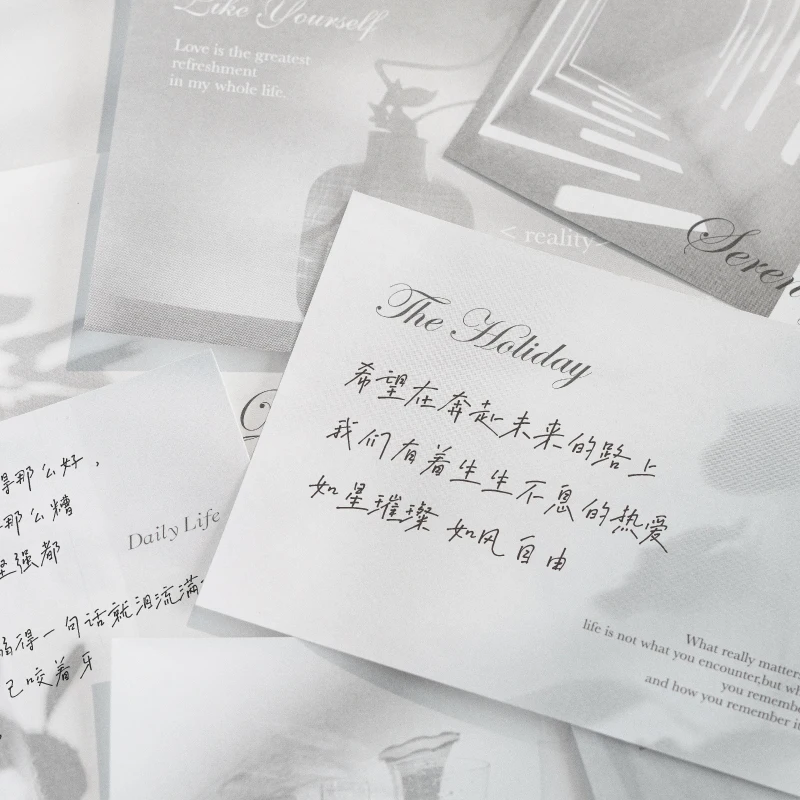 Like Yourself
Love is the greatest
refreshment
in my whole life.
< reality>
The Holiday
希望在奔赴未来的路上
我们有着生生不息的热爱
如星璀璨 如风自由
What really matters
life is not what you encounter,but
you remember
and how you remember it
那么好，
那么糟
坚强都
得一句话就泪流满
己咬着牙
Daily Life